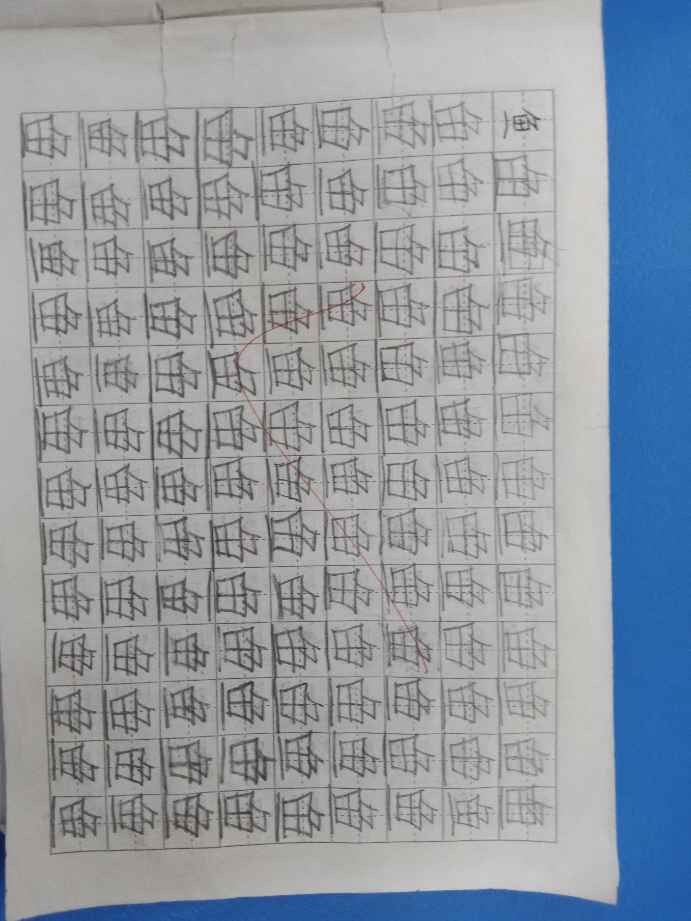 鱼鱼鱼鱼鱼鱼鱼鱼鱼鱼鱼鱼鱼
鱼鱼鱼鱼鱼鱼鱼鱼鱼鱼鱼鱼鱼
鱼鱼鱼鱼鱼鱼鱼鱼鱼鱼鱼鱼鱼
鱼鱼鱼鱼鱼鱼鱼鱼鱼鱼鱼鱼鱼
鱼鱼鱼鱼鱼鱼鱼鱼鱼鱼鱼鱼鱼
鱼鱼鱼鱼鱼鱼鱼鱼鱼鱼鱼鱼鱼
鱼鱼鱼鱼鱼鱼鱼鱼鱼鱼鱼鱼鱼
鱼鱼鱼鱼鱼鱼鱼鱼鱼鱼鱼鱼鱼
鱼鱼鱼鱼鱼鱼鱼鱼鱼鱼鱼鱼鱼